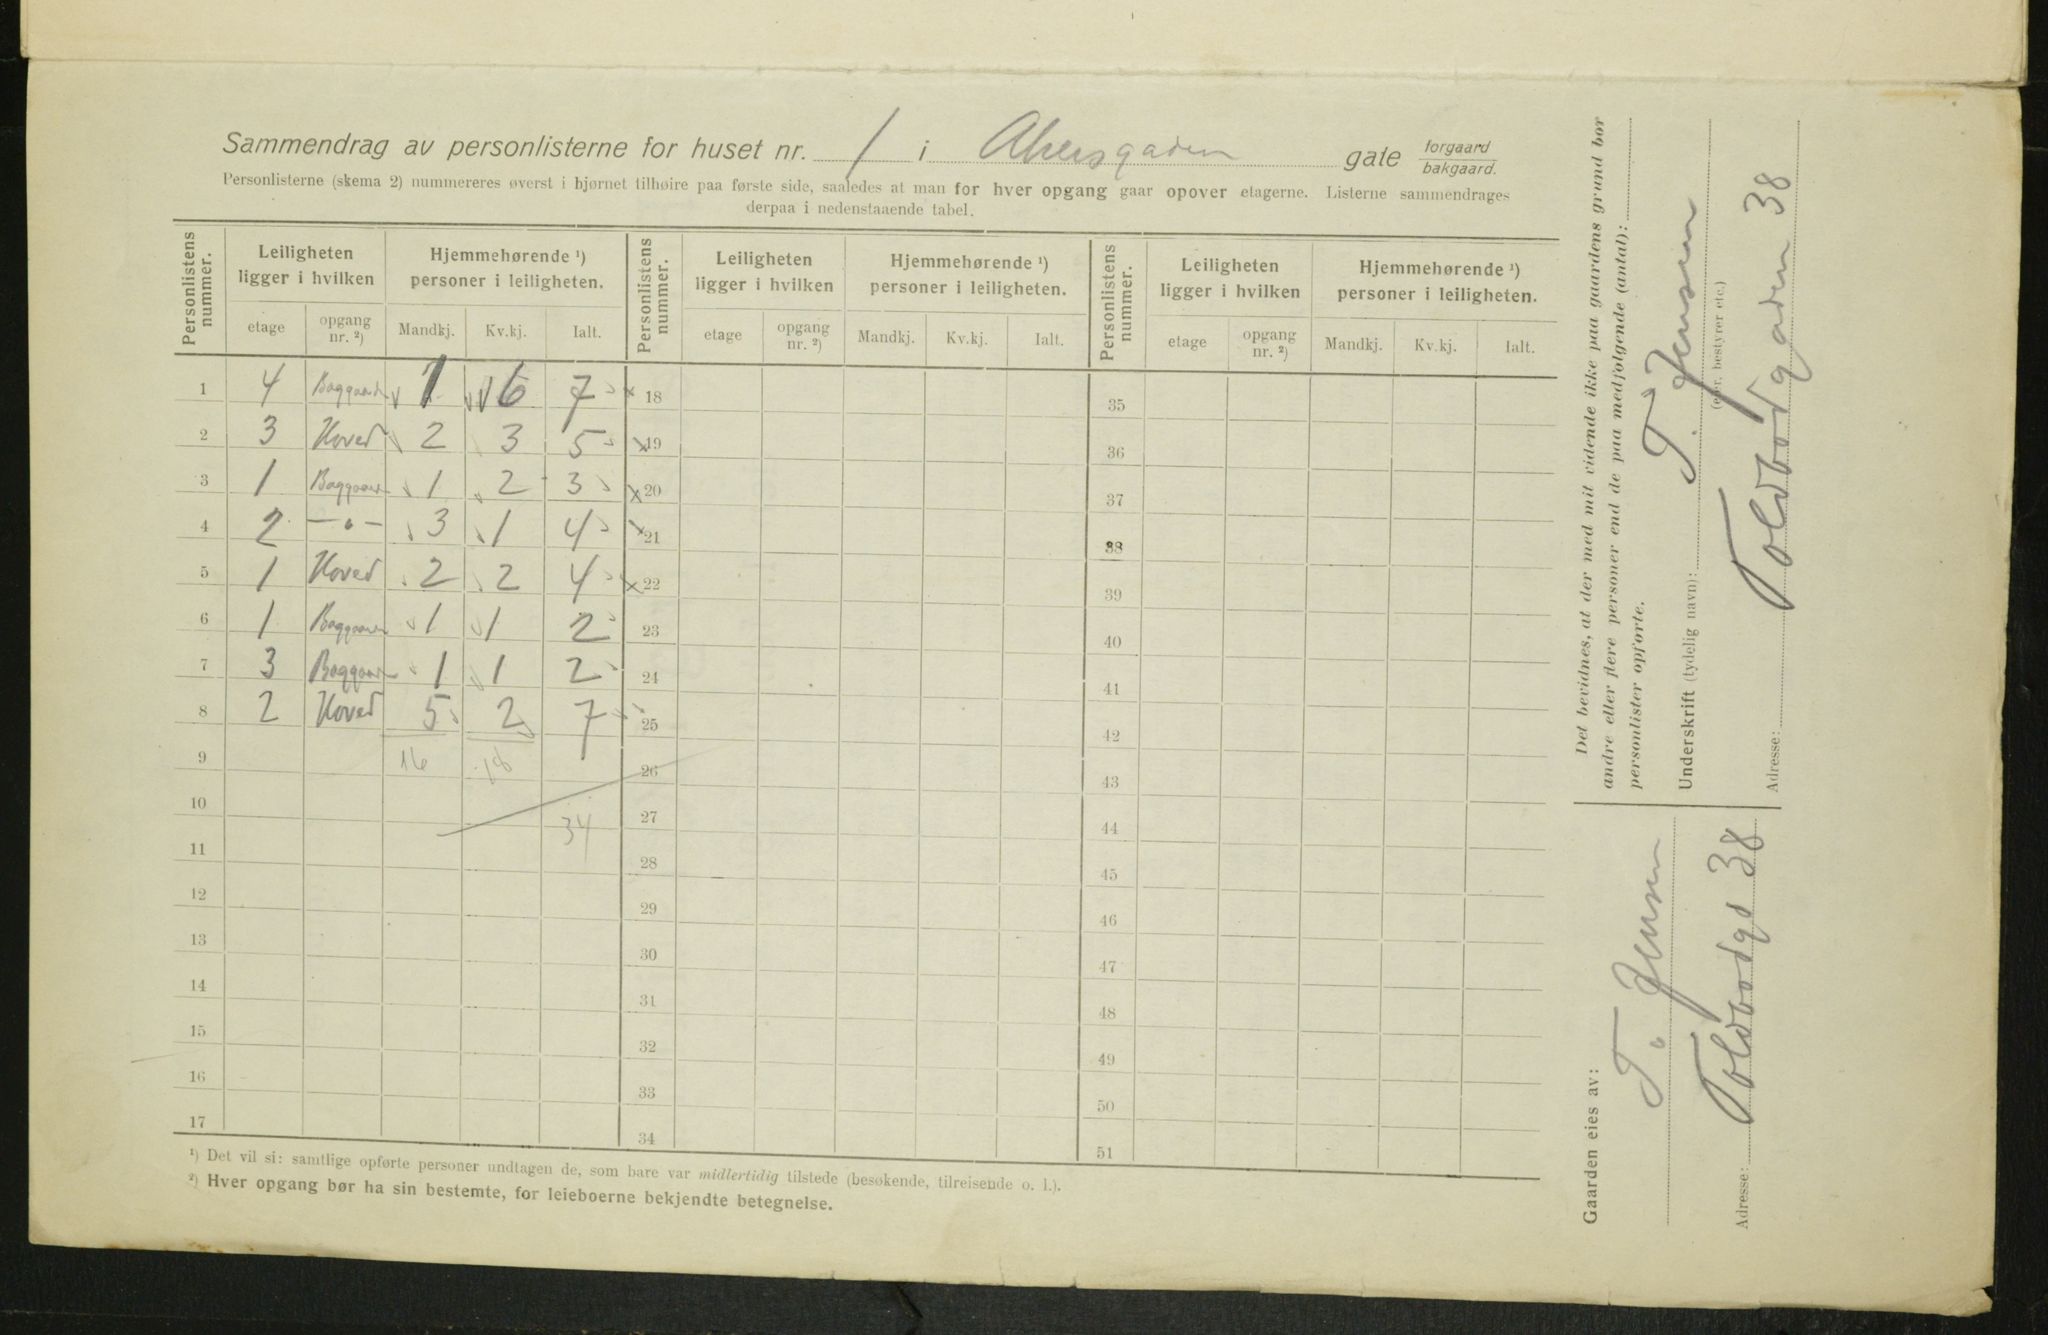 Sammendrag av personlisterne for huset nr. 1 i Akersgaden gate forgaard / bakgaard.
Personlisterne (skema 2) nummereres øverst i hjørnet tilhøire paa første side, saaledes at man for hver opgang gaar opover etagerne. Listerne sammendrages
derpaa i nedenstaaende tabel.
Personlistens nummer. | Leiligheten ligger i hvilken | Hjemmehørende ¹) personer i leiligheten. | Personlistens nummer. | Leiligheten ligger i hvilken | Hjemmehørende ¹) personer i leiligheten. | Personlistens nummer. | Leiligheten ligger i hvilken | Hjemmehørende ¹) personer i leiligheten.
etage | opgang nr. ²) | Mandkj. | Kv.kj. | Ialt. | etage | opgang nr. ²) | Mandkj. | Kv.kj. | Ialt. | etage | opgang nr. ²) | Mandkj. | Kv.kj. | Ialt.
1 4 Baggaarden 1 6 7 18 35
2 3 Hoved 2 3 5 19 36
3 1 Baggaard 1 2 3 20 37
4 2 -"- 3 1 4 21 38
5 1 Hoved 2 2 4 22 39
6 1 Baggaard 1 1 2 23 40
7 3 Baggaard 1 1 2 24 41
8 2 Hoved 5 2 7 25 42
9 16 18 26 43
10 34 27 44
11 28 45
12 29 46
13 30 47
14 31 48
15 32 49
16 33 50
17 34 51
¹) Det vil si: samtlige opførte personer undtagen de, som bare var midlertidig tilstede (besøkende, tilreisende o. l.).
²) Hver opgang bør ha sin bestemte, for leieboerne bekjendte betegnelse.
Det bevidnes, at der med mit vidende ikke paa gaardens grund bor
andre eller flere personer end de paa medfølgende (antal):
personlister opførte.
Underskrift (tydelig navn): T. Jensen
(eier, bestyrer etc.)
Adresse: Toldbodgaden 38
Gaarden eies av: T. Jensen
Adresse: Toldbodgd 38